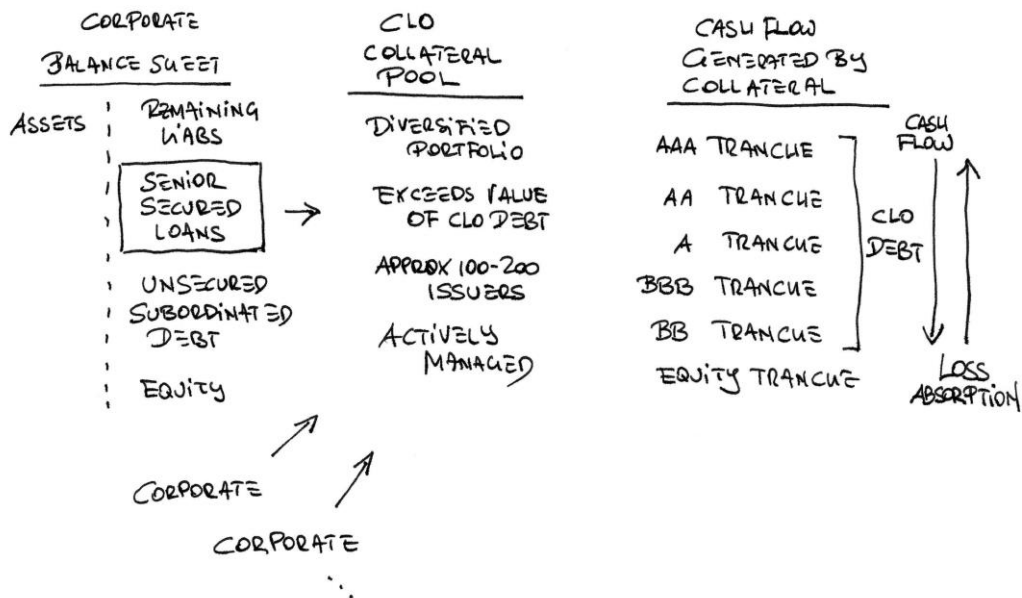 CORPORATE
BALANCE SHEET
ASSETS
REMAINING
LIABS
SENIOR
SECURED
LOANS
UNSECURED
SUBORDINATED
DEBT
EQUITY
CORPORATE
CORPORATE
CLO
COLLATERAL
POOL
DIVERSIFIED
PORTFOLIO
EXCEEDS VALUE
OF CLO DEBT
APPROX 100-200
ISSUERS
ACTIVELY
MANAGED
CASH FLOW
GENERATED BY
COLLATERAL
AAA TRANCHE
AA TRANCHE
A TRANCHE
BBB TRANCHE
BB TRANCHE
EQUITY TRANCHE
CLO
DEBT
CASH
FLOW
LOSS
ABSORPTION